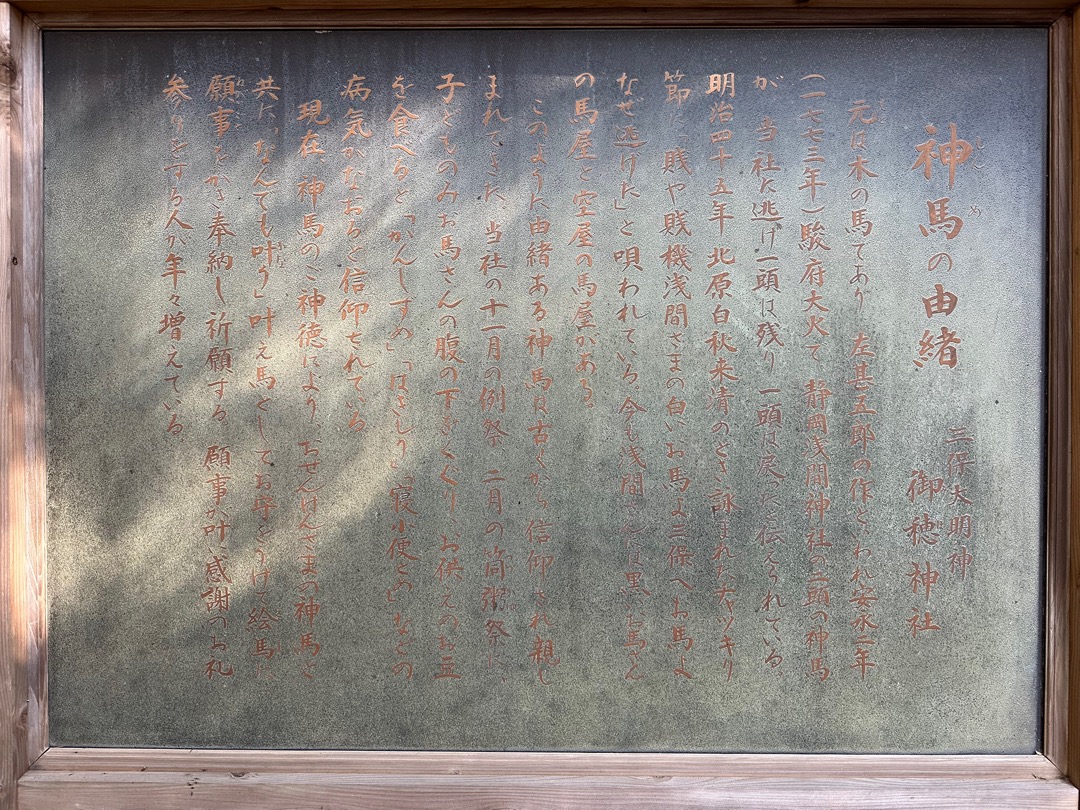 神馬の由緒
三保大明神
御穂神社
元は木の馬であり 左甚五郎の作といわれ安永二年
(一七七三年)駿府大火で 静岡浅間神社の二頭の神馬
が 当社に逃げ一頭は残り 一頭は戻ったと伝えられている。
明治四十五年 北原白秋来清のとき詠まれたチャッキリ
節に 賤や賤機浅間さまの白いお馬よ三保へお馬よ
なぜ逃げた」と唄われている。今も浅間さんには黒いお馬さん
の馬屋と空屋の馬屋がある。
このような由緒ある神馬は古くから信仰され親し
まれてきた 当社の十一月の例祭 二月の筒粥祭に
子どものみお馬さんの腹の下をくぐり、お供えのお豆
を食べると「かんしずめ」「はぎしり」「寝小便とめ」などの
病気がなおると信仰されている
現在、神馬のご神徳により、おせんげんさまの神馬と
共に「なんでも叶う」叶え馬としてお呼をうけて絵馬に
願事をかき奉納し祈願する。願事が叶い感謝のお礼
参りをする人が年々増えている